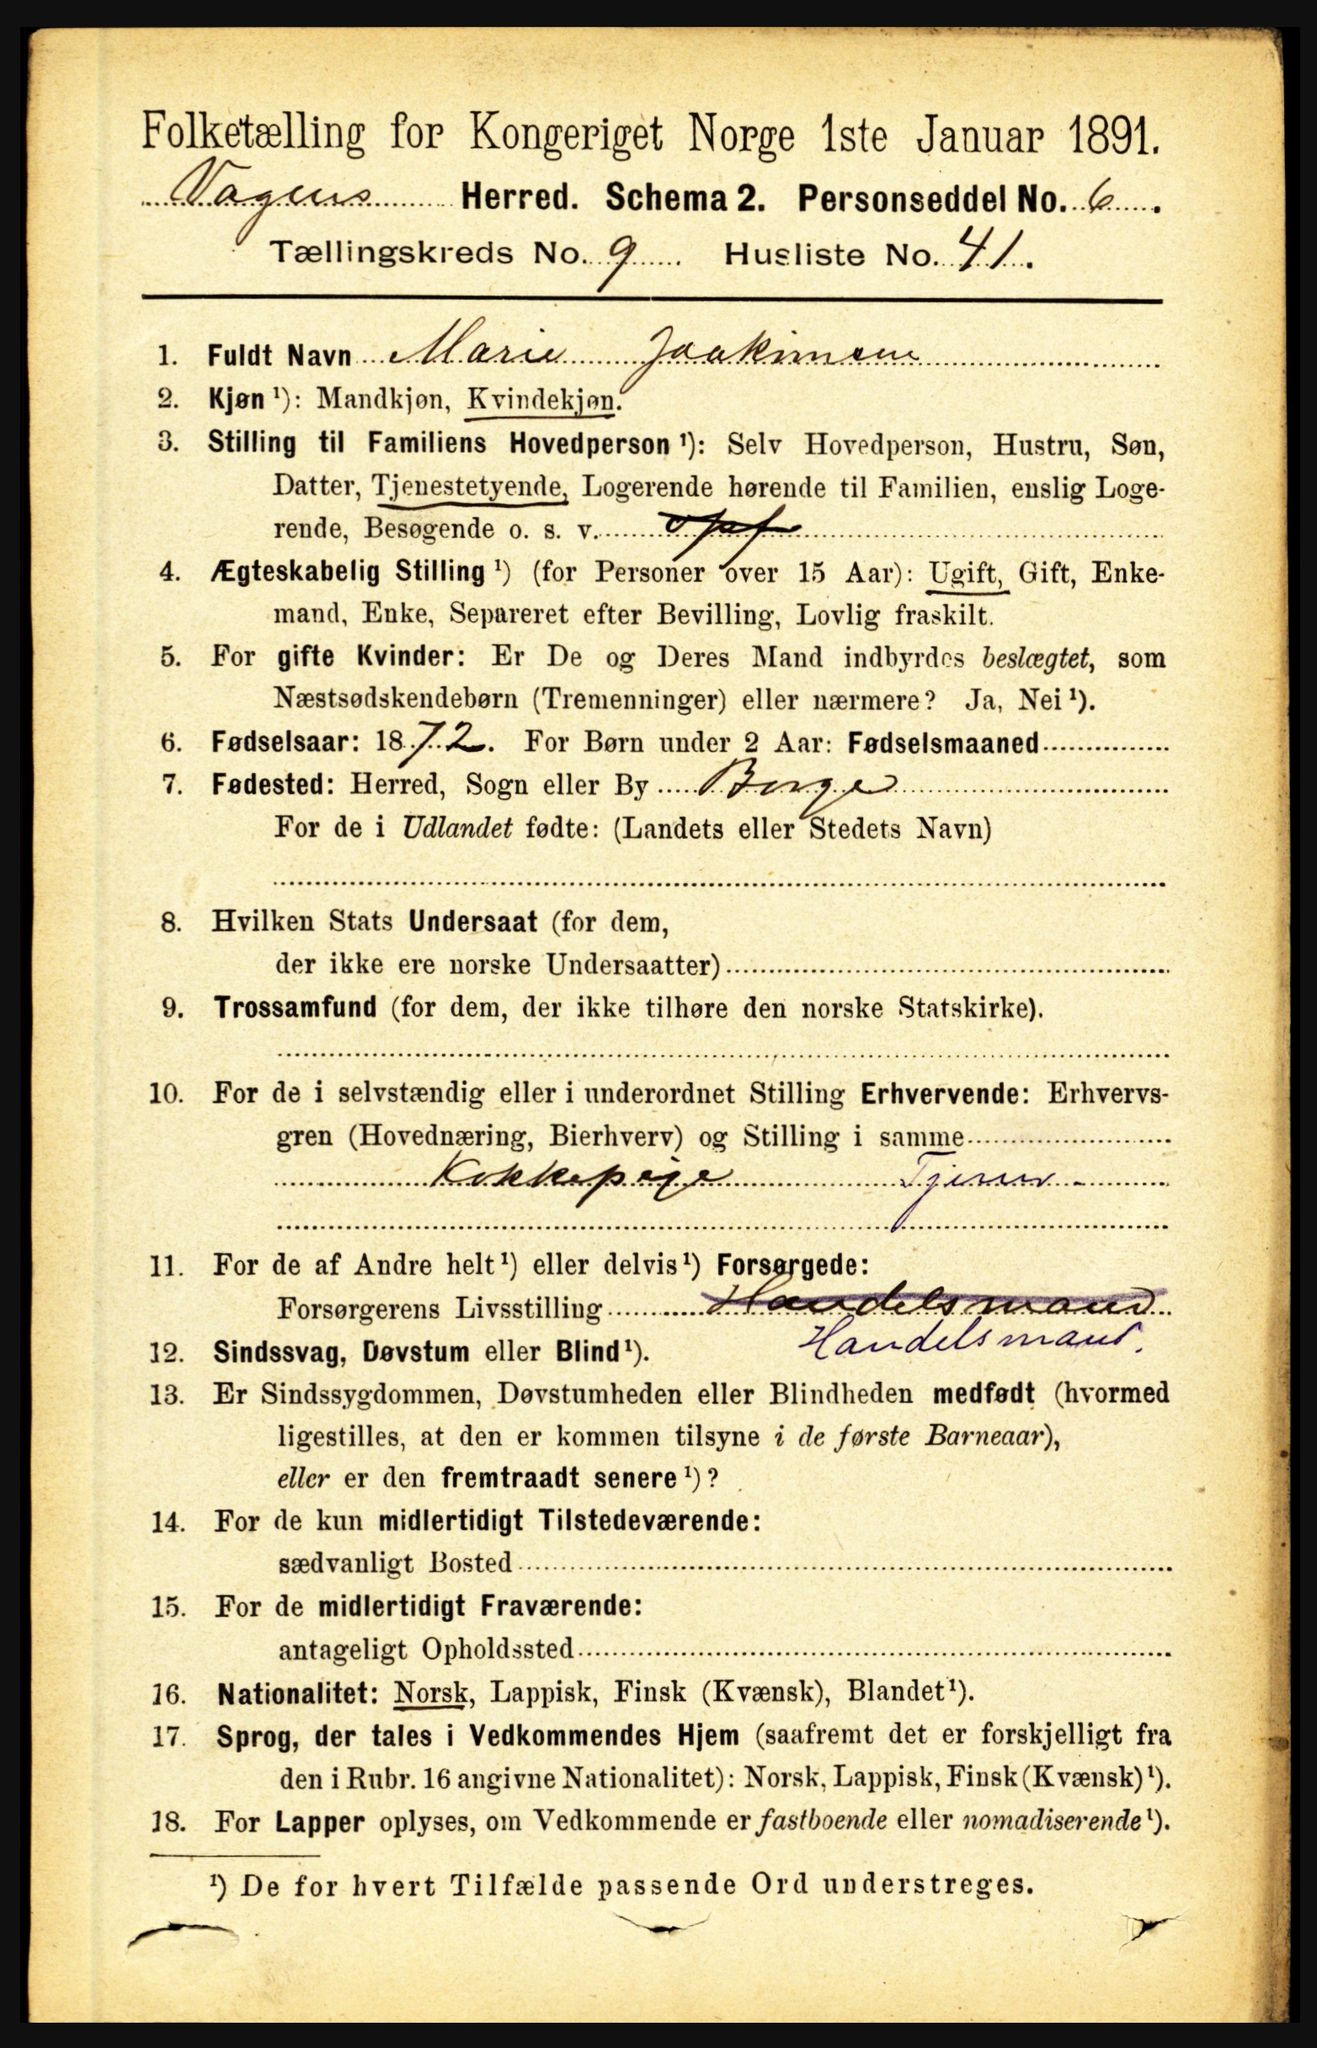 Folketælling for Kongeriget Norge 1ste Januar 1891.
Vagens Herred. Schema 2. Personseddel No. 6.
Tællingskreds No. 9 Husliste No. 41.
1. Fuldt Navn Marie Joakimsen
2. Kjøn ¹): Mandkjøn, Kvindekjøn.
3. Stilling til Familiens Hovedperson ¹): Selv Hovedperson, Hustru, Søn,
Datter, Tjenestetyende, Logerende hørende til Familien, enslig Loge-
rende, Besøgende o. s. v. opf
4. Ægteskabelig Stilling ¹) (for Personer over 15 Aar): Ugift, Gift, Enke-
mand, Enke, Separeret efter Bevilling, Lovlig fraskilt.
5. For gifte Kvinder: Er De og Deres Mand indbyrdes beslægtet, som
Næstsødskendebørn (Tremenninger) eller nærmere? Ja, Nei ¹).
6. Fødselsaar: 1872. For Børn under 2 Aar: Fødselsmaaned
7. Fødested: Herred, Sogn eller By Borge
For de i Udlandet fødte: (Landets eller Stedets Navn)
8. Hvilken Stats Undersaat (for dem,
der ikke ere norske Undersaatter)
9. Trossamfund (for dem, der ikke tilhøre den norske Statskirke).
10. For de i selvstændig eller i underordnet Stilling Erhvervende: Erhvervs-
gren (Hovednæring, Bierhverv) og Stilling i samme
Kokkepige Tjener
11. For de af Andre helt ¹) eller delvis ¹) Forsørgede:
Forsørgerens Livsstilling Handelsmand
Handelsmand.
12. Sindssvag, Døvstum eller Blind ¹).
13. Er Sindssygdommen, Døvstumheden eller Blindheden medfødt (hvormed
ligestilles, at den er kommen tilsyne i de første Barneaar),
eller er den fremtraadt senere ¹)?
14. For de kun midlertidigt Tilstedeværende:
sædvanligt Bosted
15. For de midlertidigt Fraværende:
antageligt Opholdssted
16. Nationalitet: Norsk, Lappisk, Finsk (Kvænsk), Blandet ¹).
17. Sprog, der tales i Vedkommendes Hjem (saafremt det er forskjelligt fra
den i Rubr. 16 angivne Nationalitet): Norsk, Lappisk, Finsk (Kvænsk) ¹).
18. For Lapper oplyses, om Vedkommende er fastboende eller nomadiserende ¹).
¹) De for hvert Tilfælde passende Ord understreges.